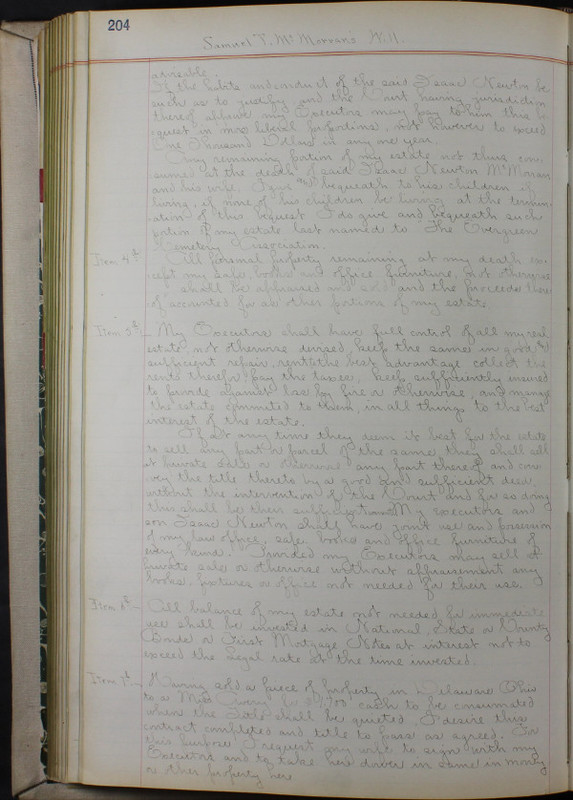 204
Samuel T. McMorran's Will.
advisable.
If the habits and conduct of the said Isaac Newton be
such as to justify and the Court having jurisdiction
thereof approve my Executors may pay to him this be
quest in more liberal proportions, not however to exceed
One Thousand Dollars in any one year.
Any remaining portion of my estate not thus con
sumed at the death of said Isaac Newton McMorran
and his wife, I give and bequeath to his children if
living, if none of his children be living at the termin
ation of this bequest I do give and bequeath such
portion of my estate last named to The Evergreen
Cemetery Association.
Item 4th All personal property remaining at my death ex
cept my safe, books and office furniture, not otherwise
shall be appraised and sold and the proceeds there
of accounted for as other portions of my estate.
Item 5th My Executors shall have full control of all my real
estate, not otherwise devised, keep the same in good and
sufficient repair, rent to the best advantage collect the
rents therefor, pay the taxes, keep sufficiently insured
to provide against loss by fire or otherwise, and manage
the estate committed to them, in all things to the best
interest of the estate.
If at any time they deem it best for the estate
to sell any part or parcel of the same they shall sell
at private sale or otherwise any part thereof and con
vey the title thereto by a good and sufficient deed,
without the intervention of the Court and for so doing
this shall be their sufficient. My executors and
son Isaac Newton shall have joint use and possession
of my law office, safe, books and office furniture of
every kind. Provided my Executors may sell at
private sale or otherwise without appraisement any
books, fixtures or office not needed for their use.
Item 6th All balance of my estate not needed for immediate
use shall be invested in National, State or County
Bonds or First Mortgage Notes at interest not to
exceed the legal rate at the time invested.
Item 7th Having sold a piece of property in Delaware Ohio
to a Miss cash to be consumated
when the title shall be quieted, I desire this
contract completed and title to pass as agreed. For
this purpose I request my wife to sign with my
Executors and to take her dower in same in money
or other property here